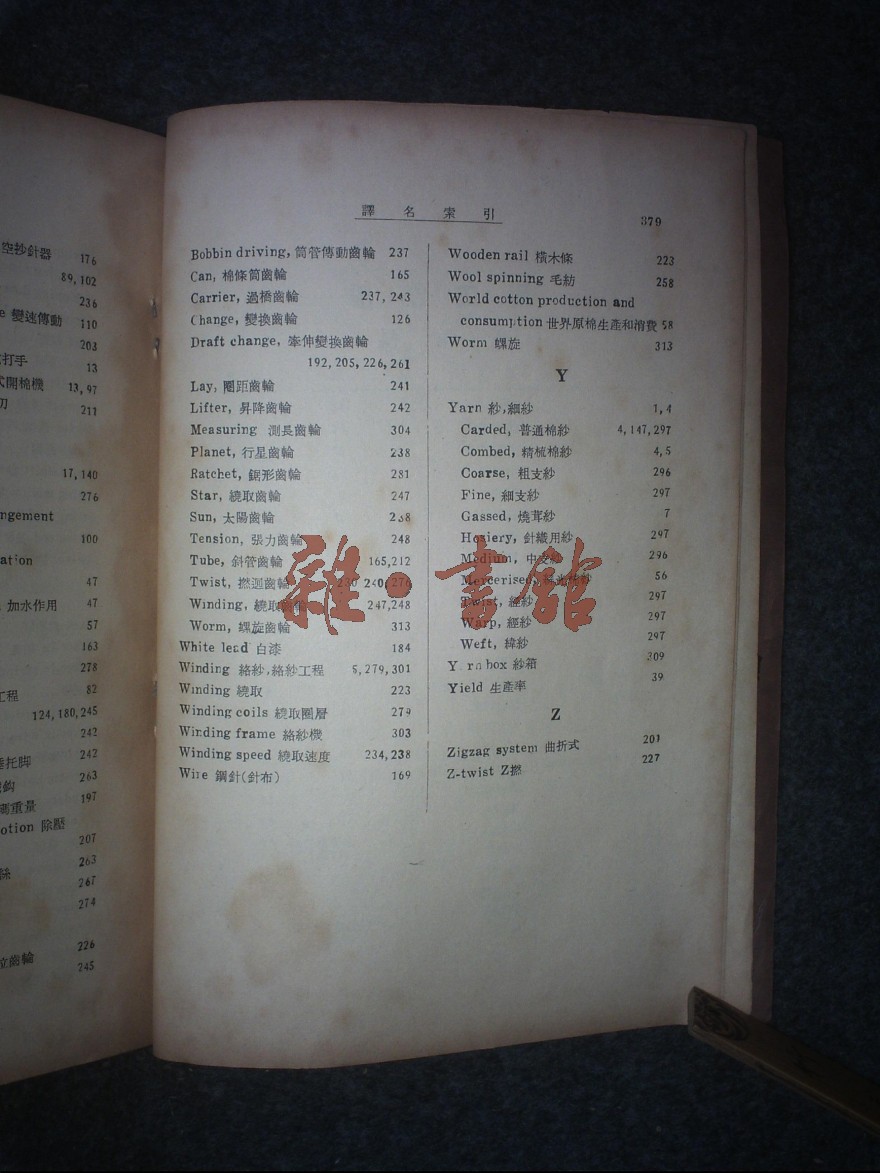 空抄針器 176
89,102
236
e 變速傳動 110
203
打手 13
式開棉機 13,97
刀 211
17,140
276
ngement
100
ation
47
加水作用 47
57
163
278
工程 82
124,180,245
242
托脚 242
鈎 263
測重量 197
otion 除壓
207
263
267
274
226
齒輪 245
譯名索引
379
Bobbin driving, 筒管傳動齒輪 237
Can, 棉條筒齒輪 165
Carrier, 過橋齒輪 237, 243
Change, 變換齒輪 126
Draft change, 牽伸變換齒輪
192, 205, 226, 261
Lay, 圈距齒輪 241
Lifter, 昇降齒輪 242
Measuring 測長齒輪 304
Planet, 行星齒輪 238
Ratchet, 鋸形齒輪 281
Star, 繞取齒輪 247
Sun, 太陽齒輪 238
Tension, 張力齒輪 248
Tube, 斜管齒輪 165,212
Twist, 撚迴齒輪 240,276
Winding, 繞取齒輪 247,248
Worm, 螺旋齒輪 313
White lead 白漆 184
Winding 絡紗,絡紗工程 5,279,301
Winding 繞取 223
Winding coils 繞取圈層 279
Winding frame 絡紗機 303
Winding speed 繞取速度 234,238
Wire 鋼針(針布) 169
Wooden rail 橫木條 223
Wool spinning 毛紡 258
World cotton production and
consumption 世界原棉生產和消費 58
Worm 螺旋 313
Y
Yarn 紗,細紗 1,4
Carded, 普通棉紗 4,147,297
Combed, 精梳棉紗 4,5
Coarse, 粗支紗 296
Fine, 細支紗 297
Gassed, 燒茸紗 7
Hosiery, 針織用紗 297
Medium, 中支紗 296
Mercerised, 56
Twist, 經紗 297
Warp, 經紗 297
Weft, 緯紗 297
Yarn box 紗箱 309
Yield 生產率 39
Z
Zigzag system 曲折式 201
Z-twist Z撚 227
雜·書館